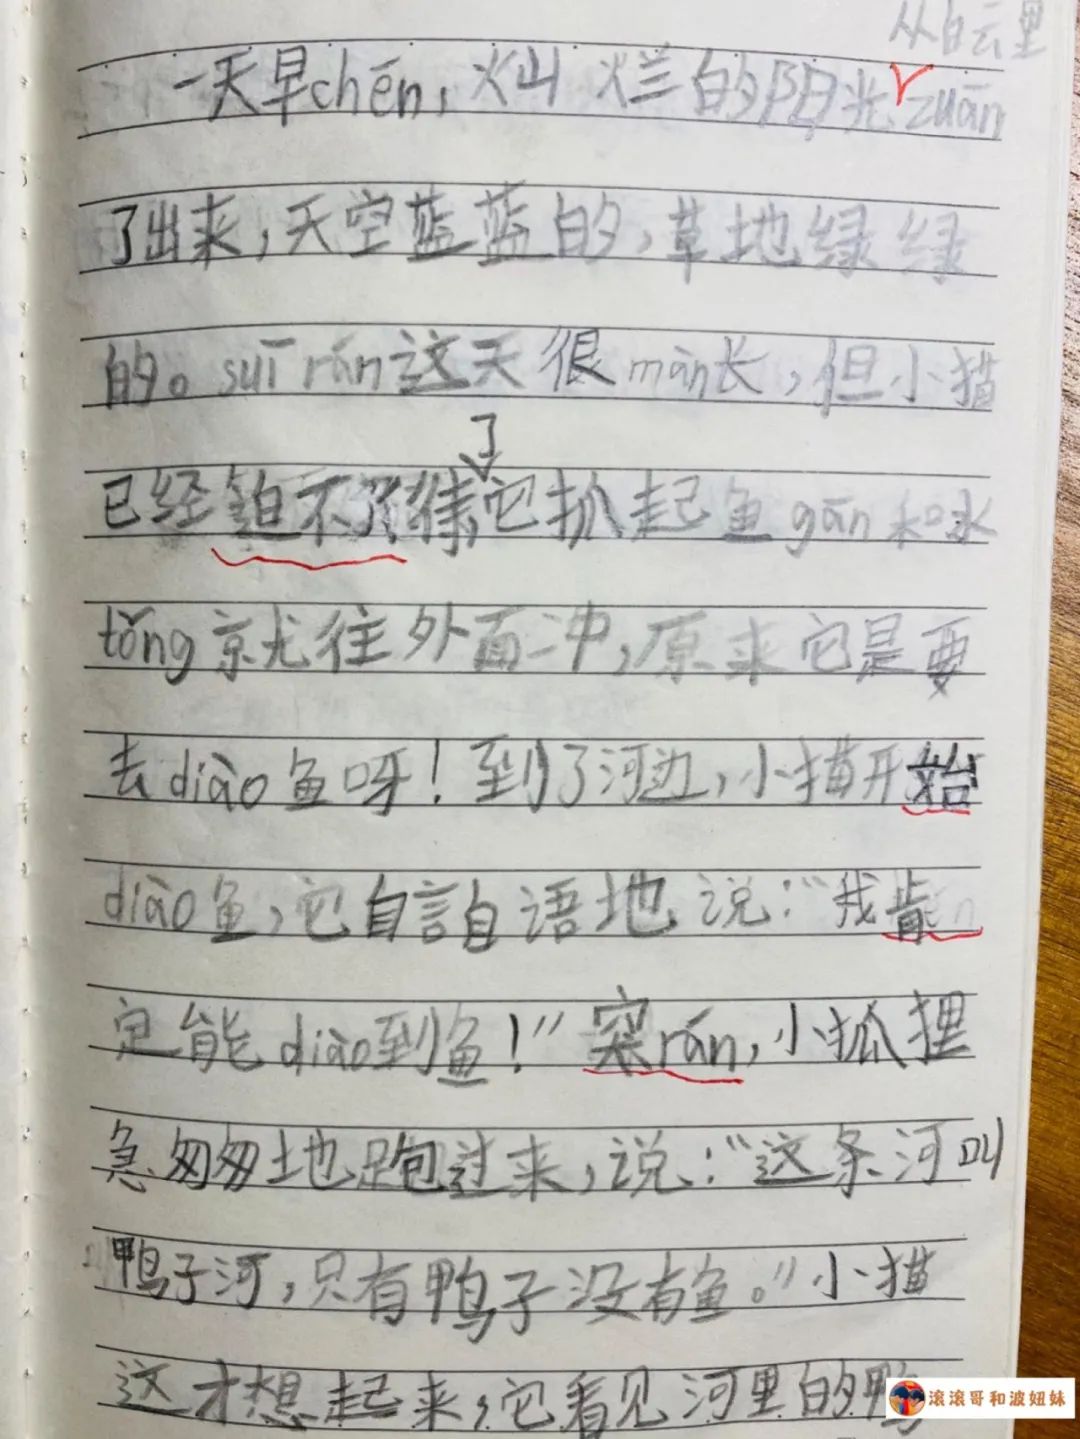 从白云里
一天早chēn，灿烂的阳光zuān
了出来，天空蓝蓝的，草地绿绿
的。suī rán这天很màn长，但小猫
了
已经迫不及待，它抓起鱼gān和水
tǒng就往外面冲，原来它是要
去diào鱼呀！到了河边，小猫开始
diào鱼，它自言自语地说：“我肯
定能diào到鱼！”突rán，小狐狸
急匆匆地跑过来，说：“这条河叫
鸭子河，只有鸭子没有鱼。”小猫
这才想起来，它看见河里的鸭
滚滚哥和波妞妹